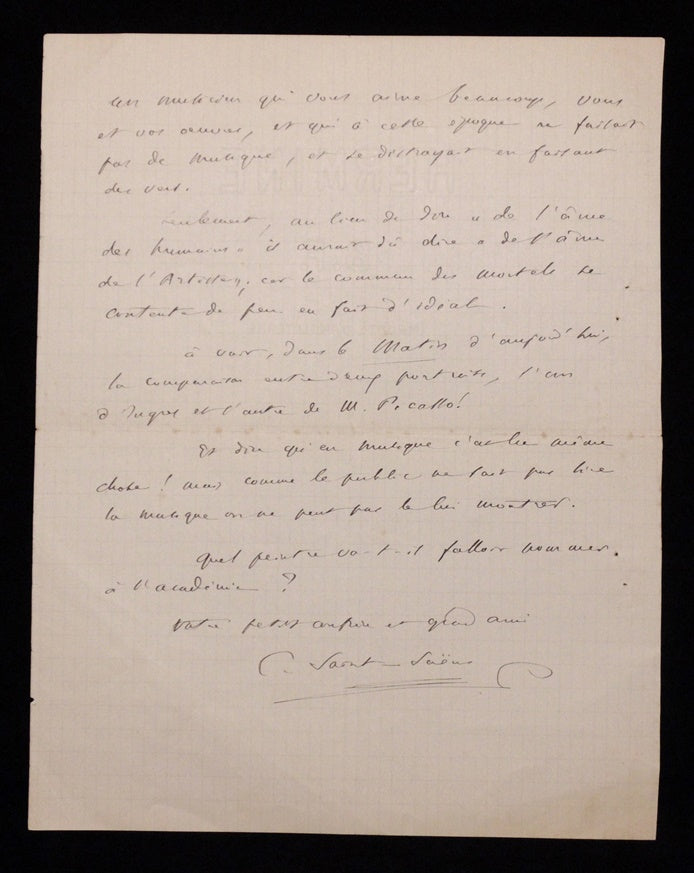 un musicien qui vous aime beaucoup, vous
et vos oeuvres, et qui à cette époque ne faisait
pas de musique, et se distrayait en faisant
des vers.
Seulement, au lieu de dire « de l'âme
des humains » il aurait dû dire « de l'âme
de l'Artiste » ; car le commun des mortels se
contente de peu en fait d'idéal.
à voir, dans le Matin d'aujourd'hui,
la comparaison entre deux portraits, l'un
d'Ingres et l'autre de M. Picasso!
Et dire qu'en musique c'est la même
chose ! mais comme le public ne sait pas lire
la musique on ne peut pas le lui montrer.
Quel peintre va-t-il falloir nommer
à l'académie ?
Votre petit confrère et grand ami
C. Saint-Saëns